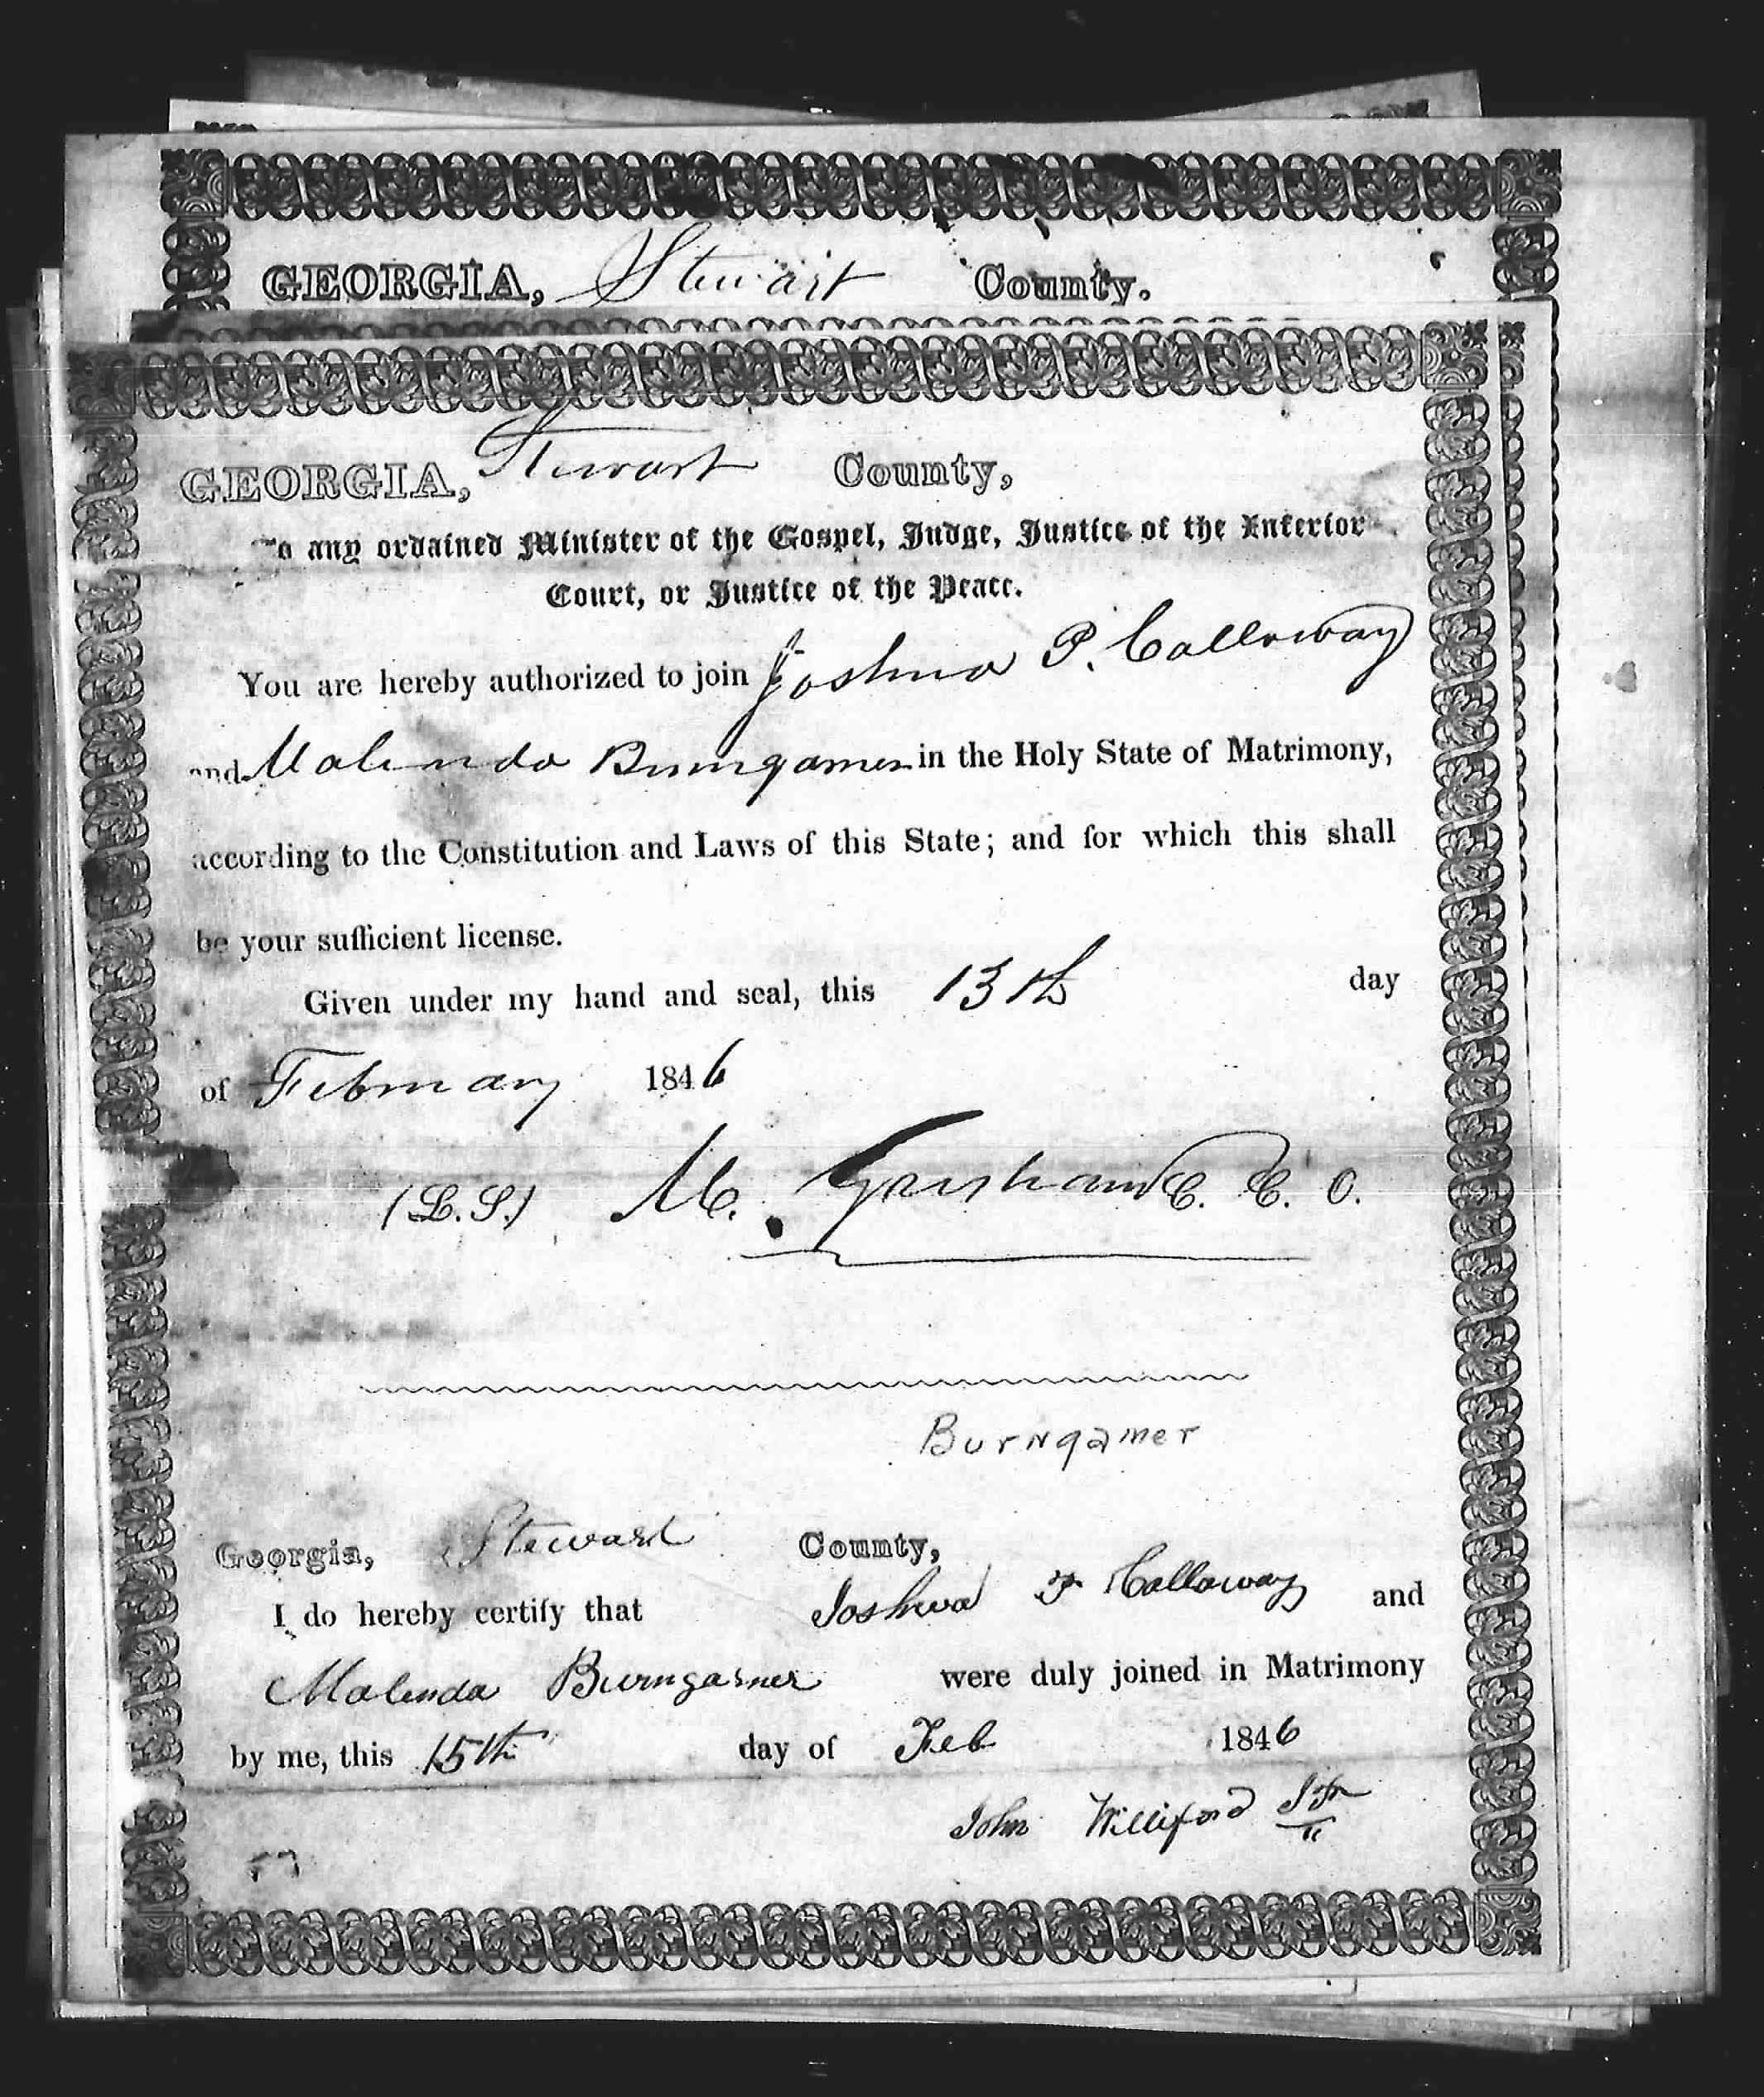 GEORGIA, Stewart County.
GEORGIA, Stewart County,
To any ordained Minister of the Gospel, Judge, Justice of the Inferior
Court, or Justice of the Peace.
You are hereby authorized to join Joshua P. Calloway
and Malinda Bumgarner in the Holy State of Matrimony,
according to the Constitution and Laws of this State; and for which this shall
be your sufficient license.
Given under my hand and seal, this 13th day
of February 1846
(L.S.) M. Gresham C. C. O.
Burngamer
Georgia, Stewart County,
I do hereby certify that Joshua P Calloway and
Malinda Bumgarner were duly joined in Matrimony
by me, this 15th day of Feb 1846
John Williford